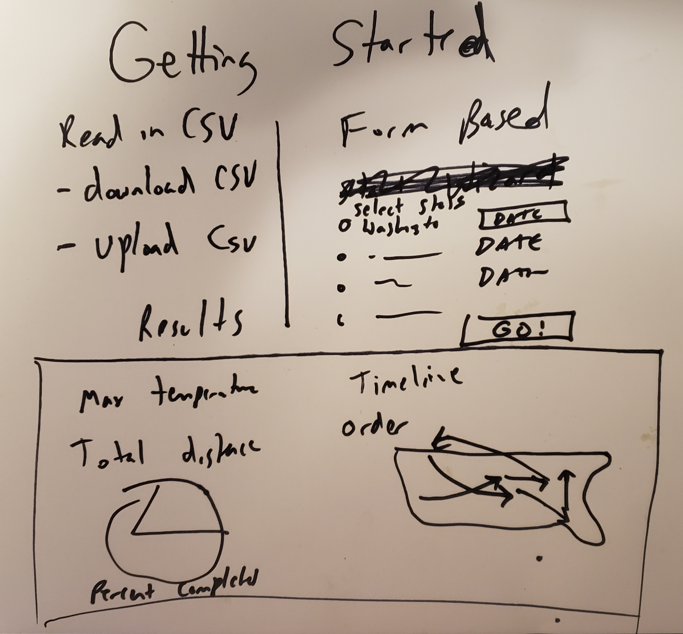 Getting Started
Read in CSV
- download CSV
- Upload Csv
Form Based
select stats
Washingto
DATE
DATE
DATE
GO!
Results
Max temperature
Total distance
Percent Completed
Timeline
order